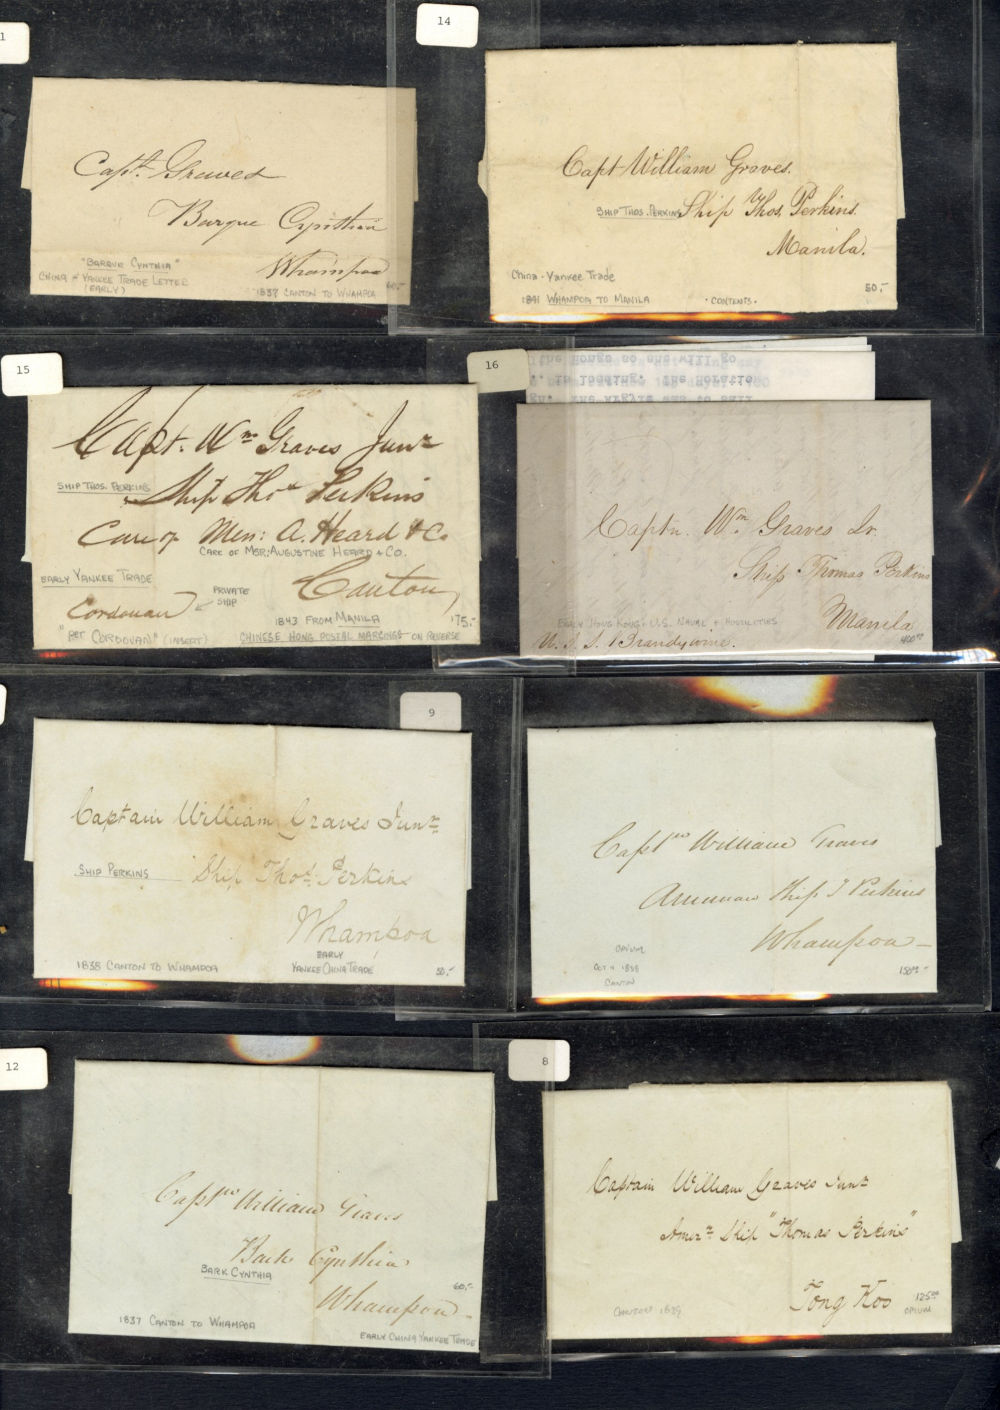 1
Capt. Graves
Barque Cynthia
Whampoa
"BARQUE CYNTHIA"
CHINA - YANKEE TRADE LETTER
(EARLY)
1837 CANTON TO WHAMPOA
60,-
14
Capt William Graves.
SHIP THOS. PERKINS
Ship Thos. Perkins.
Manila.
China - Yankee Trade
1841 WHAMPOA TO MANILA
· CONTENTS ·
50,-
15
Capt. Wm Graves Junr
SHIP THOS. PERKINS
Ship Thos Perkins
Care of Messrs: A. Heard & Co.
CARE OF MSR: AUGUSTINE HEARD & CO.
EARLY YANKEE TRADE
Canton,
PRIVATE
SHIP
Cordouan
1843 FROM MANILA
175,-
"PER CORDOVAN" (INSERT)
CHINESE HONG POSTAL MARKINGS - ON REVERSE
16
the Hongs so she will go
. in loading. The Horatio
Captn. Wm Graves Jr.
Ship Thomas Perkins
EARLY HONG KONG + U.S. NAVAL + HOSTILITIES
Manila
400.00
U. S. S. Brandywine.
9
Captain William Graves Junr
SHIP PERKINS
Ship Thos. Perkins
Whampoa
EARLY
1838 CANTON TO WHAMPOA
YANKEE CHINA TRADE
50,-
Captn William Graves
American Ship T Perkins
Whampoa
OPIUM
OCT 4 1838
CANTON
12
Captn William Graves
Bark Cynthia
BARK CYNTHIA
60,-
Whampoa
1837 CANTON TO WHAMPOA
EARLY CHINA YANKEE TRADE
8
Captain William Graves Junr
Amern Ship "Thomas Perkins"
Tong Koo
125.00
CANTON 1839
OPIUM